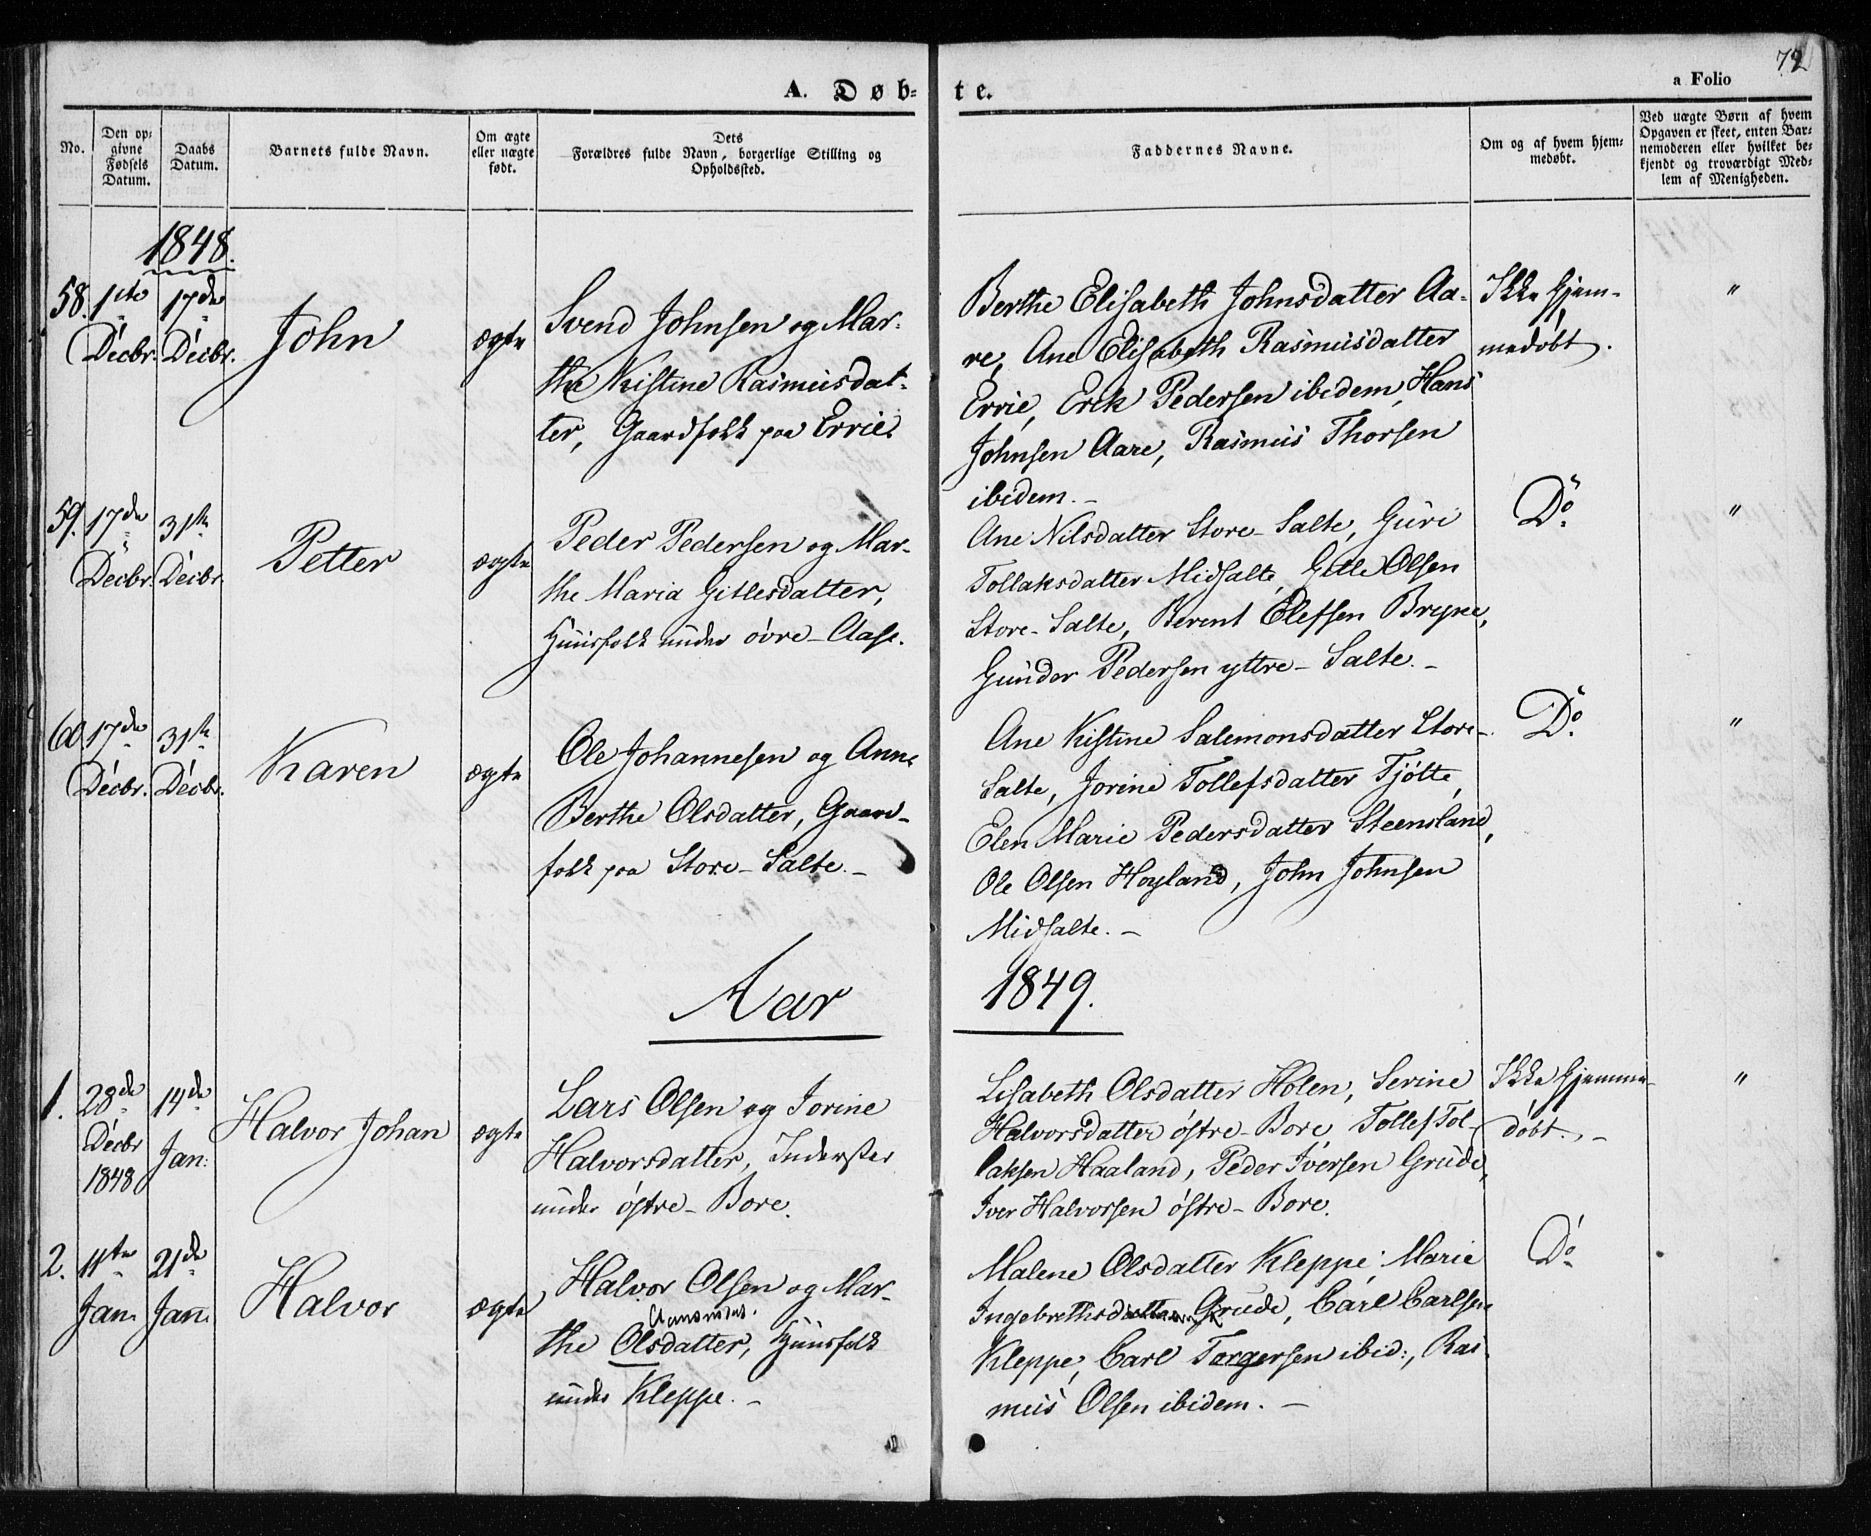 72
A. Døb=te.
a Folio
No.
Den op=
givne
Fødsels
Datum.
Daabs
Datum.
Barnets fulde Navn.
Om ægte
eller uægte
født.
Dets
Forældres fulde Navn, borgerlige Stilling og
Opholdssted.
Faddernes Navne.
Om og af hvem hjem=
medøbt.
Ved uægte Børn af hvem
Opgaven er skeet, enten Bar=
nemoderen eller hvilket be=
kjendt og troværdigt Med=
lem af Menigheden.
1848.
58.
1ste
Decbr.
17de
Decbr.
John
ægte
Svend Johnsen og Mar-
the Kistine Rasmusdat-
ter, Gaardfolk paa Errie.
Berthe Elisabeth Johnsdatter Aa-
re, Ane Elisabeth Rasmusdatter
Errie, Erik Pedersen ibidem, Hans
Johnsen Aare, Rasmus Thorsen
ibidem.-
Ikke hjem-
medøbt.
"
59.
17de
Decbr.
31te
Decbr.
Petter
ægte
Peder Pedersen og Mar-
the Maria Gitlesdatter,
Huusfolk under øvre-Aase.
Ane Nilsdatter Store-Salte, Guri
Tollaksdatter Midsalte, Gitle Olsen
Store-Salte, Berent Elefsen Bryne,
Gunder Pedersen yttre-Salte.-
Do
"
60
17de
Decbr.
31te
Decbr.
Karen
ægte
Ole Johannesen og Anne
Berthe Olsdatter, Gaard-
folk paa Store-Salte.-
Ane Kistine Salemonsdatter Store-
Salte, Jorine Tollefsdatter Tjøtte,
Elen Marie Pedersdatter Steensland,
Ole Olsen Høyland, John Johnsen
Midsalte.-
Do
"
Aar 1849.
1.
28de
Decbr
1848
14de
Jan:
Halvor Johan
ægte
Lars Olsen og Jorine
Halvorsdatter, Inderster
under østre-Bore.
Lisabeth Olsdatter Holen, Serine
Halvorsdatter østre-Bore, Tollef Tol-
laksen Haaland, Peder Iversen Grude,
Iver Halvorsen østre-Bore.
Ikke hjemme-
døbt.-
"
2.
11te
Jan.
21de
Jan.
Halvor
ægte
Halvor Olsen og Mar-
the Olsdatter, Huusfolk
under Kleppe.-
Malene Olsdatter Kleppe, Marie
Ingebrethsdatter Grude, Carl Carlsen
Kleppe, Carl Torgersen ibid:, Ras-
mus Olsen ibidem.-
Do